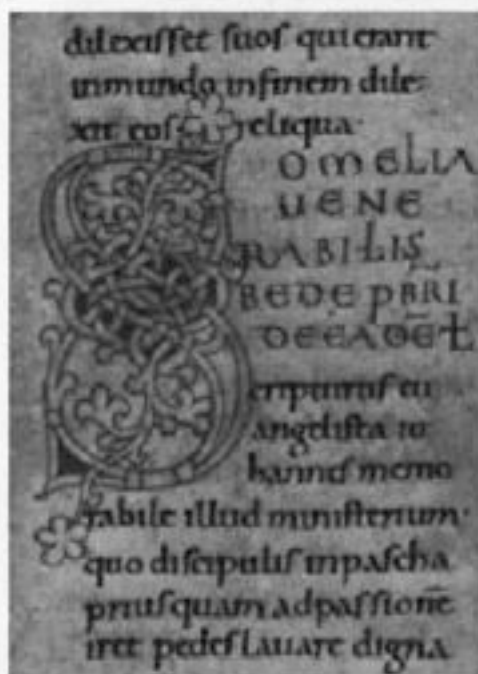 dilexisset suos qui erant
in mundo in finem dile
xit eos & reliqua·
OMELIA
UENE
RABILIS
BEDE PB̅RI
DE EADE̅ L̅
S cripturus eu
angelista io
hannes memo
rabile illud ministerium·
quo discipulis in pascha
priusquam ad passione̅
iret pedes lauare digna